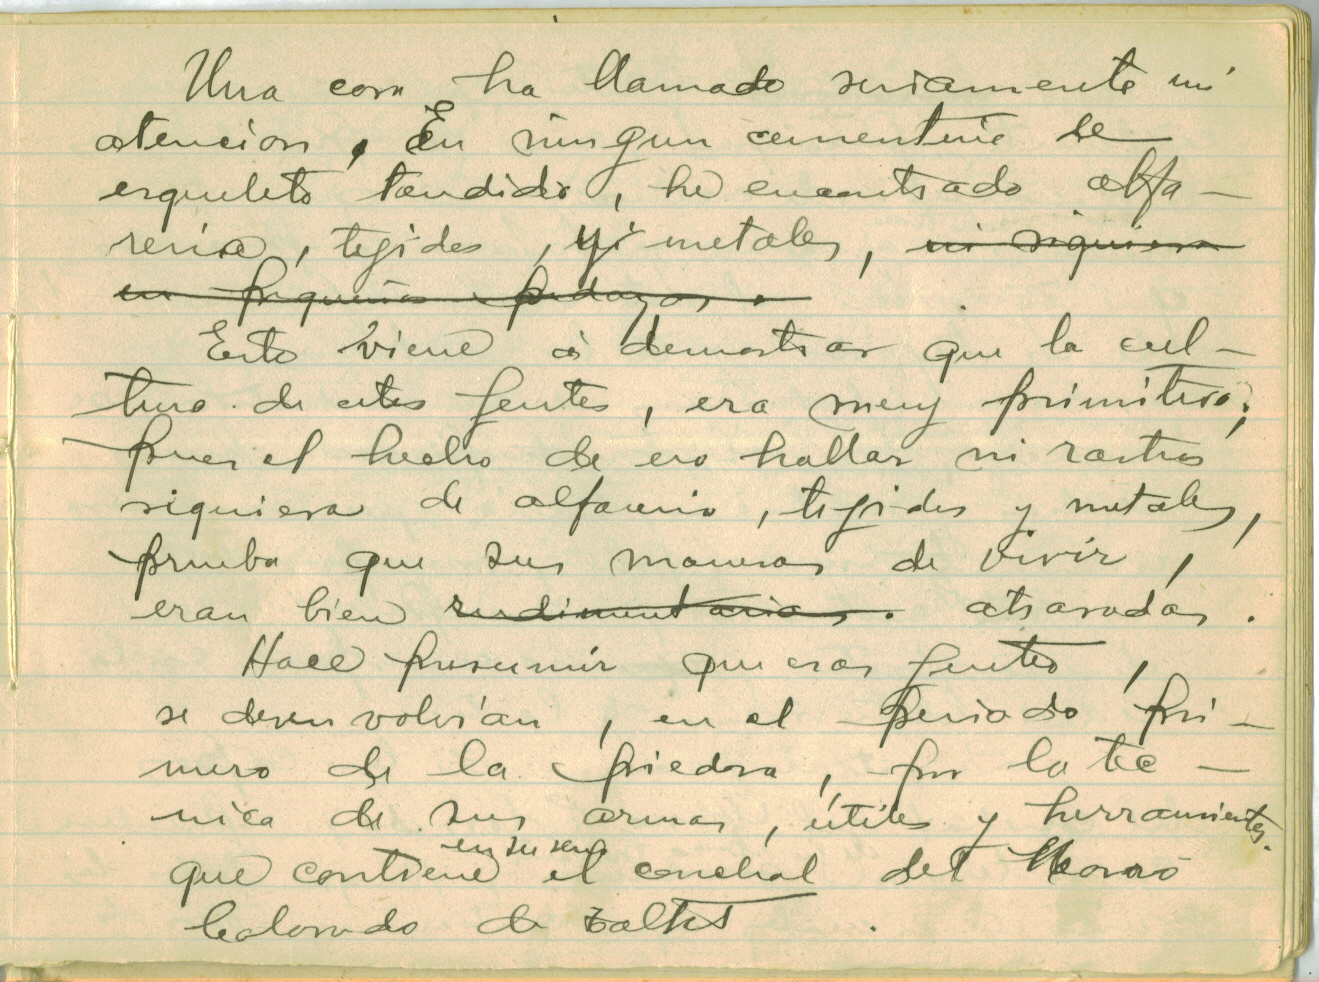 Una cosa ha llamado seriamente mi
atencion, En ningun cementerio de
esqueleto tendido, he encontrado alfa-
reria, tejidos, y metales, ni siquiera
en pequeños pedazos.
Esto viene á demostrar que la cul-
tura de estas gentes, era muy primitiva;
pues el hecho de no hallar ni rastros
siquiera de alfareria, tejidos y metales,
prueba que sus maneras de vivir,
eran bien rudimentarias. atrasadas.
Hace presumir que esas gentes,
se desenvolvían, en el periodo pri-
mero de la piedra, por la téc-
nica de sus armas, útiles y herramientas.
en su seno
que contiene el conchal del Morro
Colorado de Taltal.